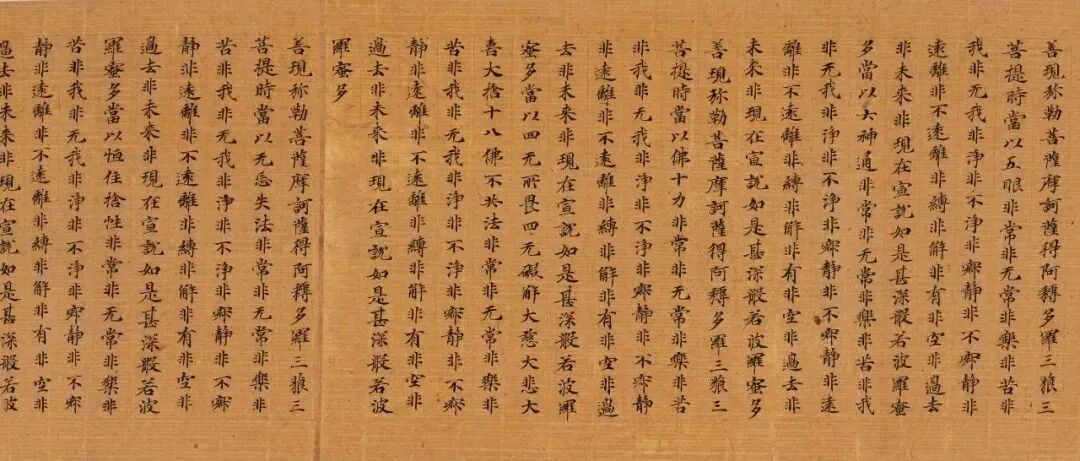 善現弥勒菩薩摩訶薩得阿耨多羅三狼三
菩提時當以五眼非常非无常非樂非苦非
我非无我非淨非不淨非寂静非不寂静非
遠離非不遠離非縛非解非有非空非過去
非未來非現在宣說如是甚深般若波羅蜜
多當以六神通非常非无常非樂非苦非我
非无我非淨非不淨非寂静非不寂静非遠
離非不遠離非縛非解非有非空非過去非
未來非現在宣說如是甚深般若波羅蜜多
善現弥勒菩薩摩訶薩得阿耨多羅三狼三
菩提時當以佛十力非常非无常非樂非苦
非我非无我非淨非不淨非寂静非不寂静
非遠離非不遠離非縛非解非有非空非過
去非未來非現在宣說如是甚深般若波羅
蜜多當以四无所畏四无礙解大慈大悲大
喜大捨十八佛不共法非常非无常非樂非
苦非我非无我非淨非不淨非寂静非不寂
静非遠離非不遠離非縛非解非有非空非
過去非未來非現在宣說如是甚深般若波
羅蜜多
善現弥勒菩薩摩訶薩得阿耨多羅三狼三
菩提時當以无忘失法非常非无常非樂非
苦非我非无我非淨非不淨非寂静非不寂
静非遠離非不遠離非縛非解非有非空非
過去非未來非現在宣說如是甚深般若波
羅蜜多當以恒住捨性非常非无常非樂非
苦非我非无我非淨非不淨非寂静非不寂
静非遠離非不遠離非縛非解非有非空非
過去非未來非現在宣說如是甚深般若波